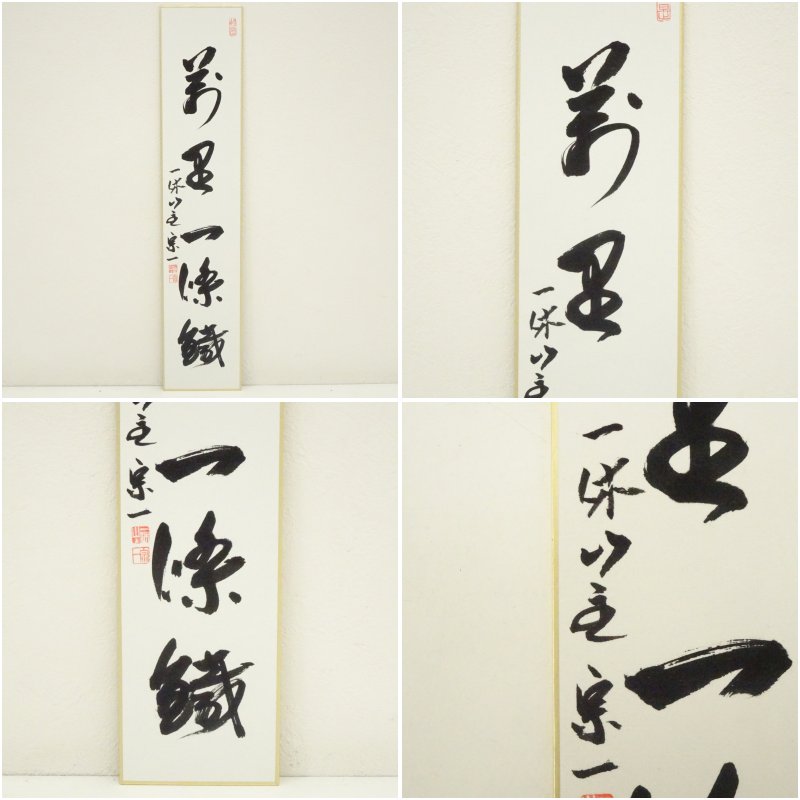 萬里一條鐵
一休山主 宗一
萬里
一休山主
一條鐵
主 宗一
里一
一休山主 宗一